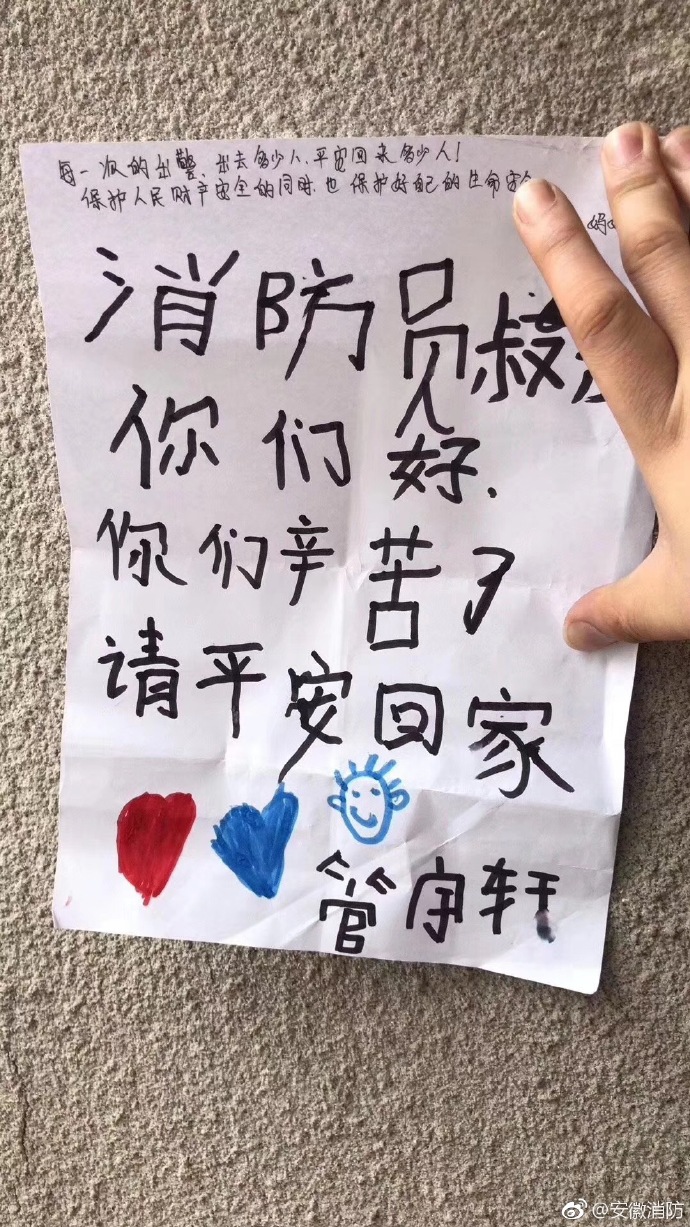 每一次的出警，出去多少人，平安回来多少人！
保护人民财产安全的同时，也保护好自己的生命安全
妈
消防员叔
你们好.
你们辛苦了
请平安回家
管宇轩
@安徽消防